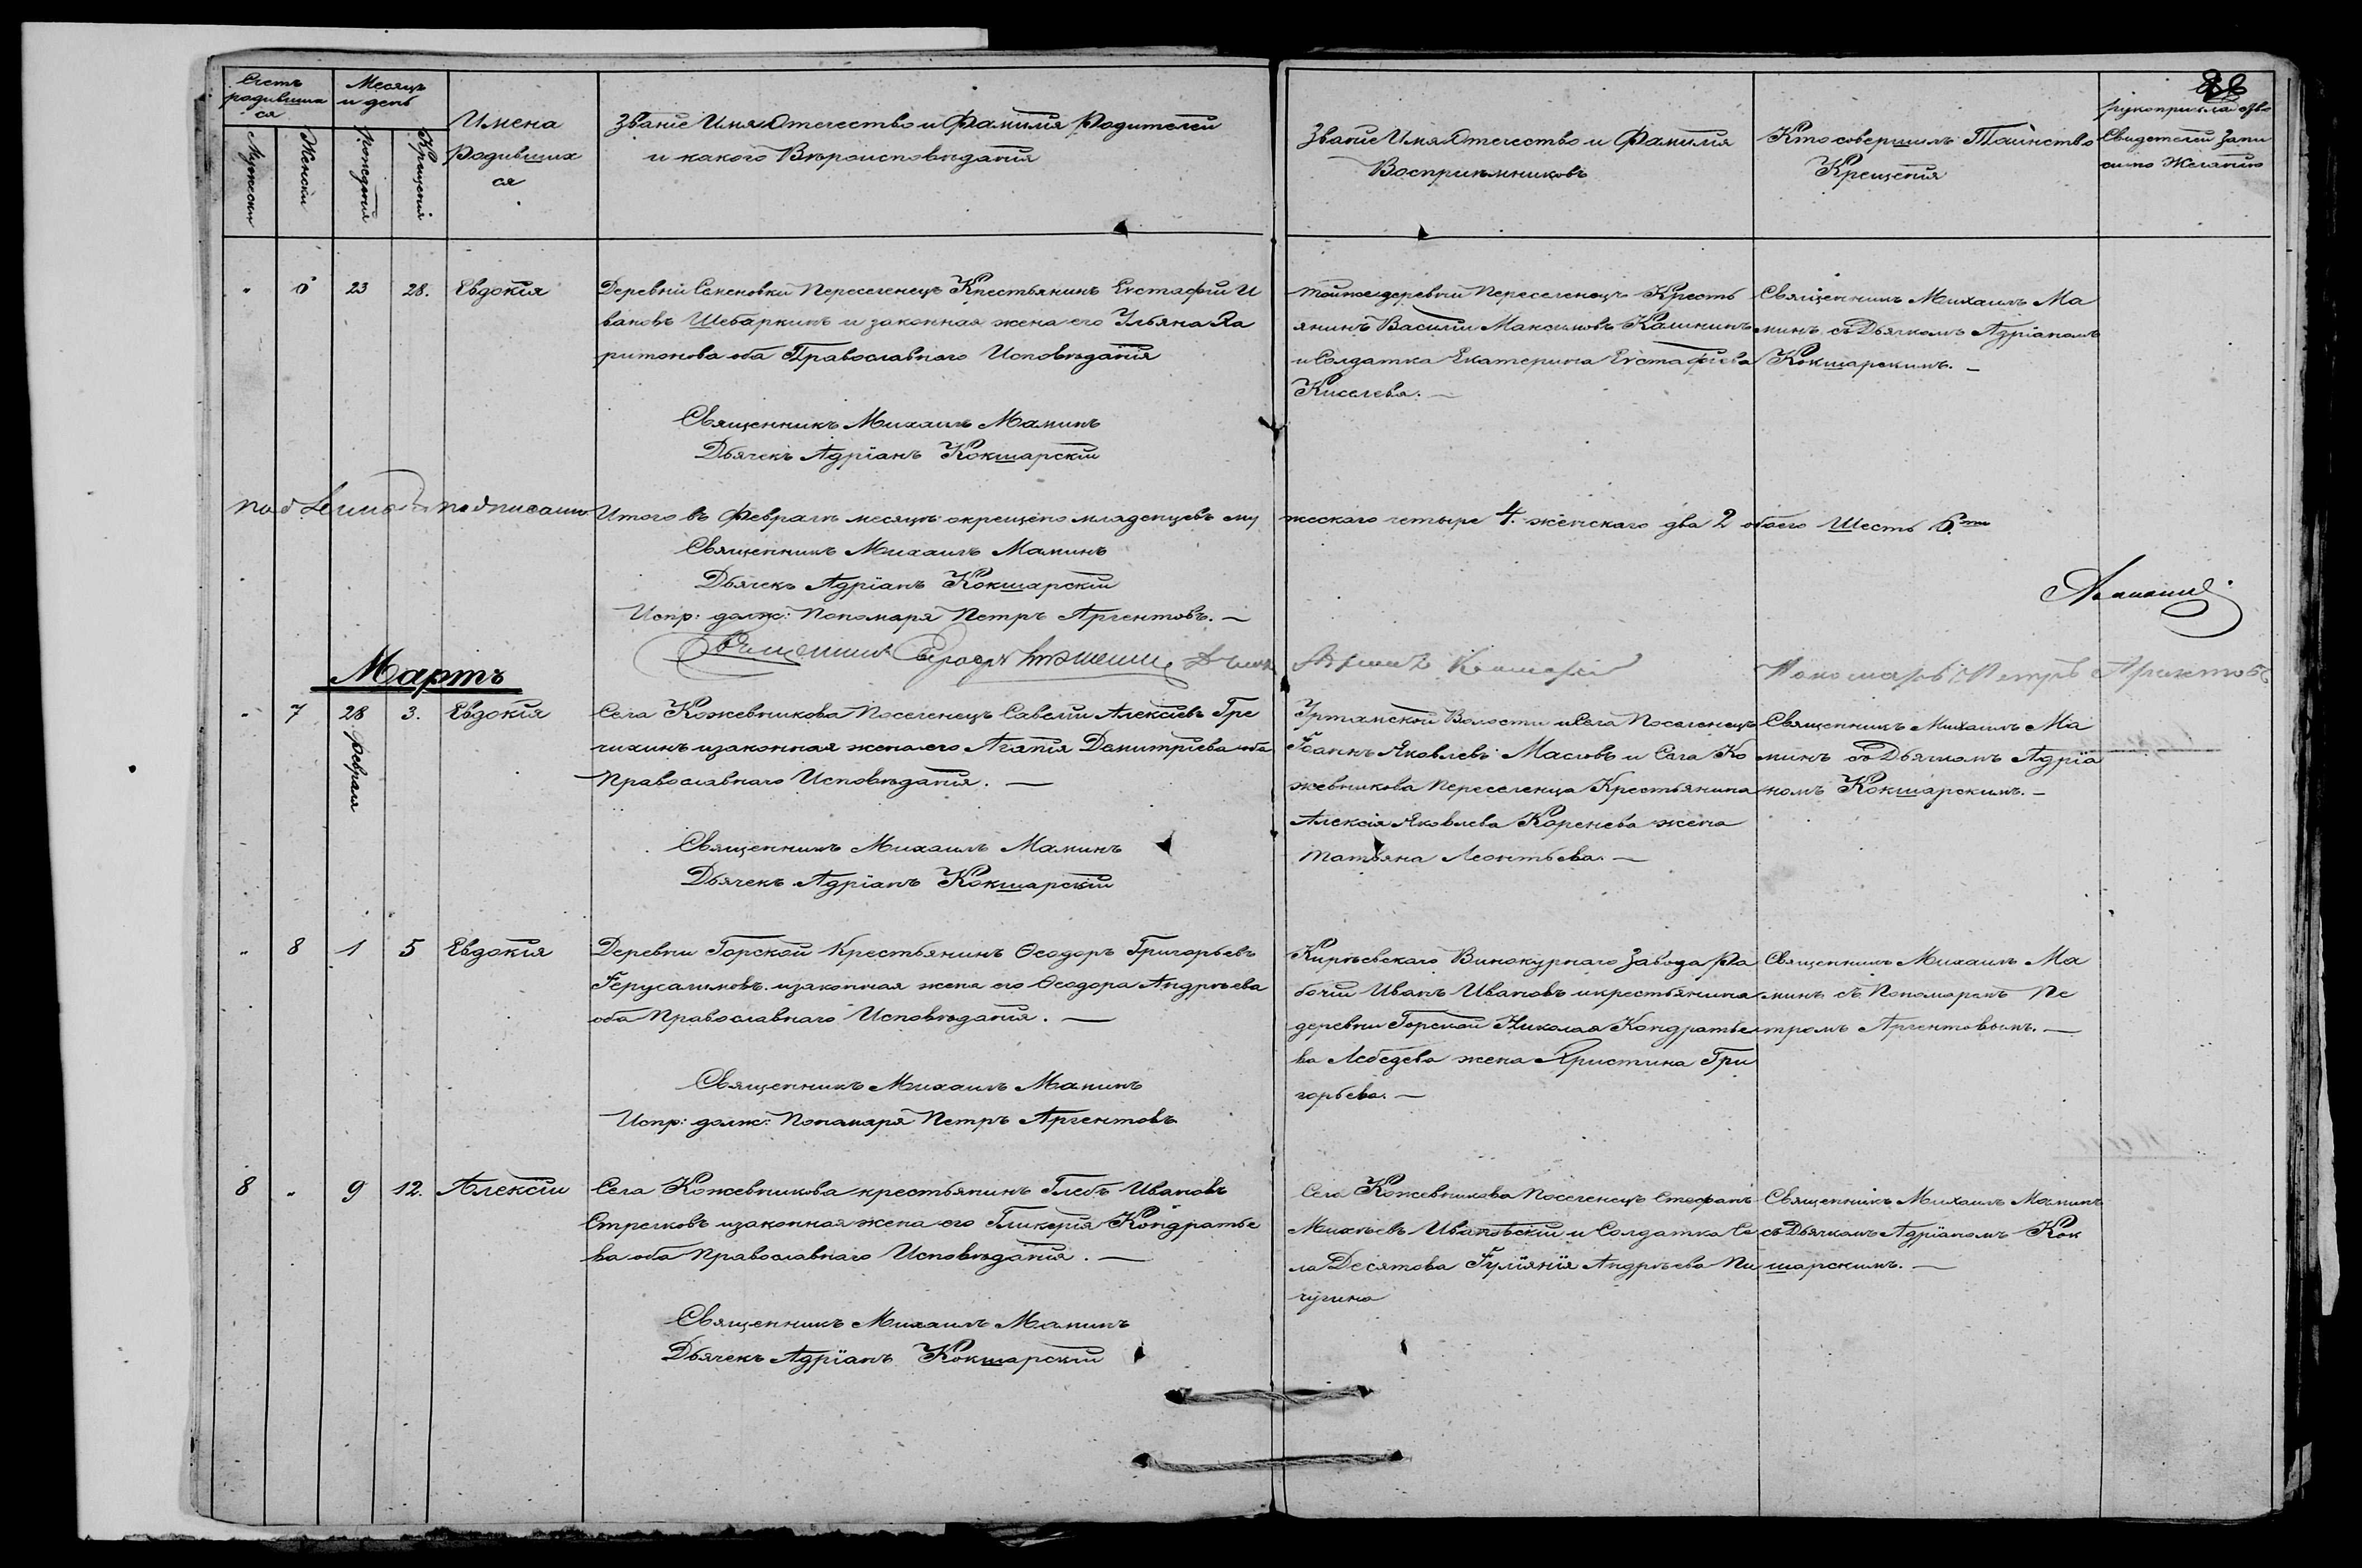 Счетъ
родивших
ся
Месяцъ
и день
Мужески
Женски
Рождения
Крещения
Имена
Родивших
ся
Званіе Имя Отечество и Фамилія Родителей
и какого Вѣроисповѣданія
Званіе Имя Отечество и Фамилія
Воспріемниковъ
Кто совершилъ Таинство
Крещенія
рукоприкладство
Свидетелей запи
си по Желанію
„ 6 23 28. Евдокія
Деревни Семеновки Переселенецъ Крестьянинъ Евстафій И
вановъ Шебаркинъ и законная жена его Ульяна Ха
ритонова оба Православнаго Исповѣданія
Священникъ Михаилъ Маминъ
Дьячекъ Адріанъ Кокшарскій
тойже деревни Переселенецъ Кресть
янинъ Василій Максимовъ Калининъ
и Солдатка Екатерина Евстафіева
Киселева. —
Священникъ Михаилъ Ма
минъ съ Дьячкомъ Адріаномъ
Кокшарскимъ. —
Итого въ Февралѣ месяцѣ окрещено младенцевъ му
жескаго четыре 4. женскаго два 2 обоего Шесть 6.
Священникъ Михаилъ Маминъ
Дьячекъ Адріанъ Кокшарскій
Испр: долж: Пономаря Петръ Аргентовъ. —
Священникъ
Пономарь Петръ Аргентовъ
Мартъ
„ 7 28 февраля 3. Евдокія
Села Кожевникова Поселенецъ Савелій Алексіевъ Гре
чихинъ и законная жена его Агапія Димитріева оба
Православнаго Исповѣданія. —
Священникъ Михаилъ Маминъ
Дьячекъ Адріанъ Кокшарскій
Уртамской Волости и Села Поселенецъ
Іоаннъ Яковлевъ Масловъ и Села Ко
жевникова Переселенца Крестьянина
Алексія Яковлева Коренева жена
Татьяна Леонтьева. —
Священникъ Михаилъ Ма
минъ съ Дьячкомъ Адріа
номъ Кокшарскимъ. —
„ 8 1 5 Евдокія
Деревни Горской Крестьянинъ Ѳеодоръ Григорьевъ
Іерусалимовъ и законная жена его Ѳеодора Андрѣева
оба Православнаго Исповѣданія. —
Священникъ Михаилъ Маминъ
Испр: долж: Пономаря Петръ Аргентовъ
Кирѣевскаго Винокурнаго Завода Ра
бочій Иванъ Ивановъ и крестьянина
деревни Горской Николая Кондратье
ва Лебедева жена Христина Гри
горьева. —
Священникъ Михаилъ Ма
минъ съ Пономаремъ Пе
тромъ Аргентовымъ. —
8 „ 9 12. Алексій
Села Кожевникова крестьянинъ Глебъ Ивановъ
Стрелковъ и законная жена его Гликерія Кондратье
ва оба Православнаго Исповѣданія. —
Священникъ Михаилъ Маминъ
Дьячекъ Адріанъ Кокшарскій
Села Кожевникова Поселенецъ Стефанъ
Михѣевъ Ивановскій и Солдатка Се
ла Десятова Іуліянія Андрѣева Пи
чугина
Священникъ Михаилъ Маминъ
съ Дьячкомъ Адріаномъ Кок
шарскимъ. —